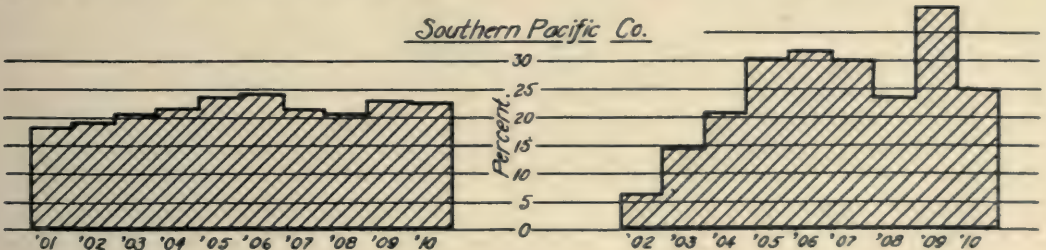 Southern Pacific Co.
Percent.
30
25
20
15
10
5
0
'01 '02 '03 '04 '05 '06 '07 '08 '09 '10
'02 '03 '04 '05 '06 '07 '08 '09 '10